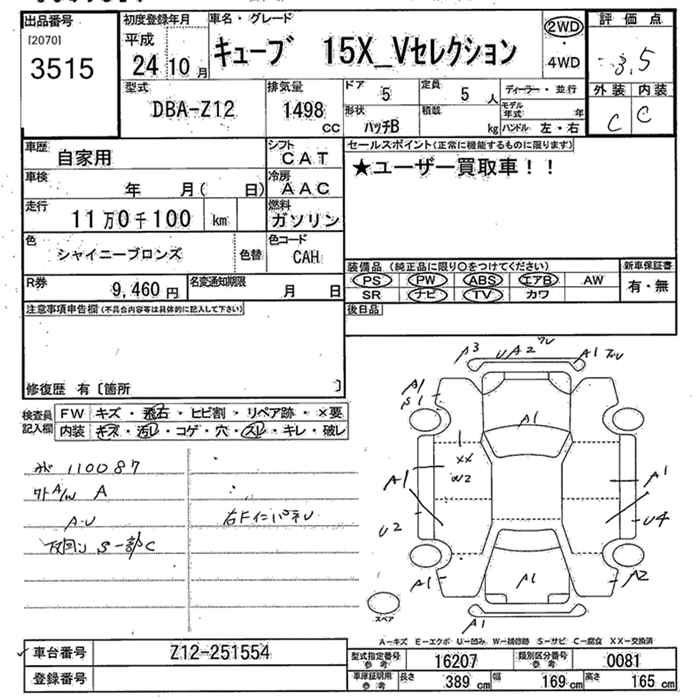 出品番号
[2070]
3515
初度登録年月
平成
24 10 月
車名・グレード
キューブ 15X_Vセレクション
2WD
4WD
評価点
3.5
外装 内装
C C
型式
DBA-Z12
排気量
1498
CC
ドア 5
定員 5 人
形状 ハッチB
積載 kg
ディーラー・並行
モデル年式 年
ハンドル 左・右
車歴 自家用
シフト CAT
車検 年 月( 日)
冷房 AAC
走行 11万0千100 km
燃料 ガソリン
色 シャイニーブロンズ 色替
色コード CAH
R券 9,460 円
名変通知期限 月 日
セールスポイント(正常に機能するものに限ります)
★ユーザー買取車！！
装備品 (純正品に限り○をつけてください)
新車保証書
PS PW ABS エアB AW
SR ナビ TV カワ
有・無
後日品
注意事項申告欄(不具合内容等は具体的に記入して下さい)
修復歴 有〔箇所 〕
検査員記入欄
FW キズ・飛石・ヒビ割・リペア跡・×要
内装 キズ・汚レ・コゲ・穴・スレ・キレ・破レ
110087
A/W A
A-U
下回り S一部C
A3 UA2 A1
A1
A1
XX
A1 A1
U2 U4
A1 A1 A2
A1
スペア
A－キズ E－エクボ U－凹み W－補修跡 S－サビ C－腐食 XX－交換済
車台番号 Z12-251554
登録番号
型式指定番号 参考 16207
類別区分番号 参考 0081
車庫証明用 参考 長さ 389 cm 幅 169 cm 高さ 165 cm